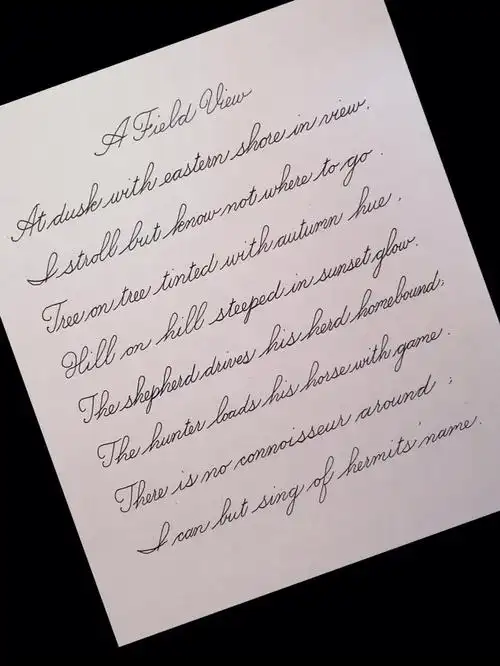 A Field View
At dusk with eastern shore in view,
I stroll but know not where to go.
Tree on tree tinted with autumn hue,
Hill on hill steeped in sunset glow.
The shepherd drives his herd homebound;
The hunter loads his horse with game.
There is no connoisseur around;
I can but sing of hermits' name.